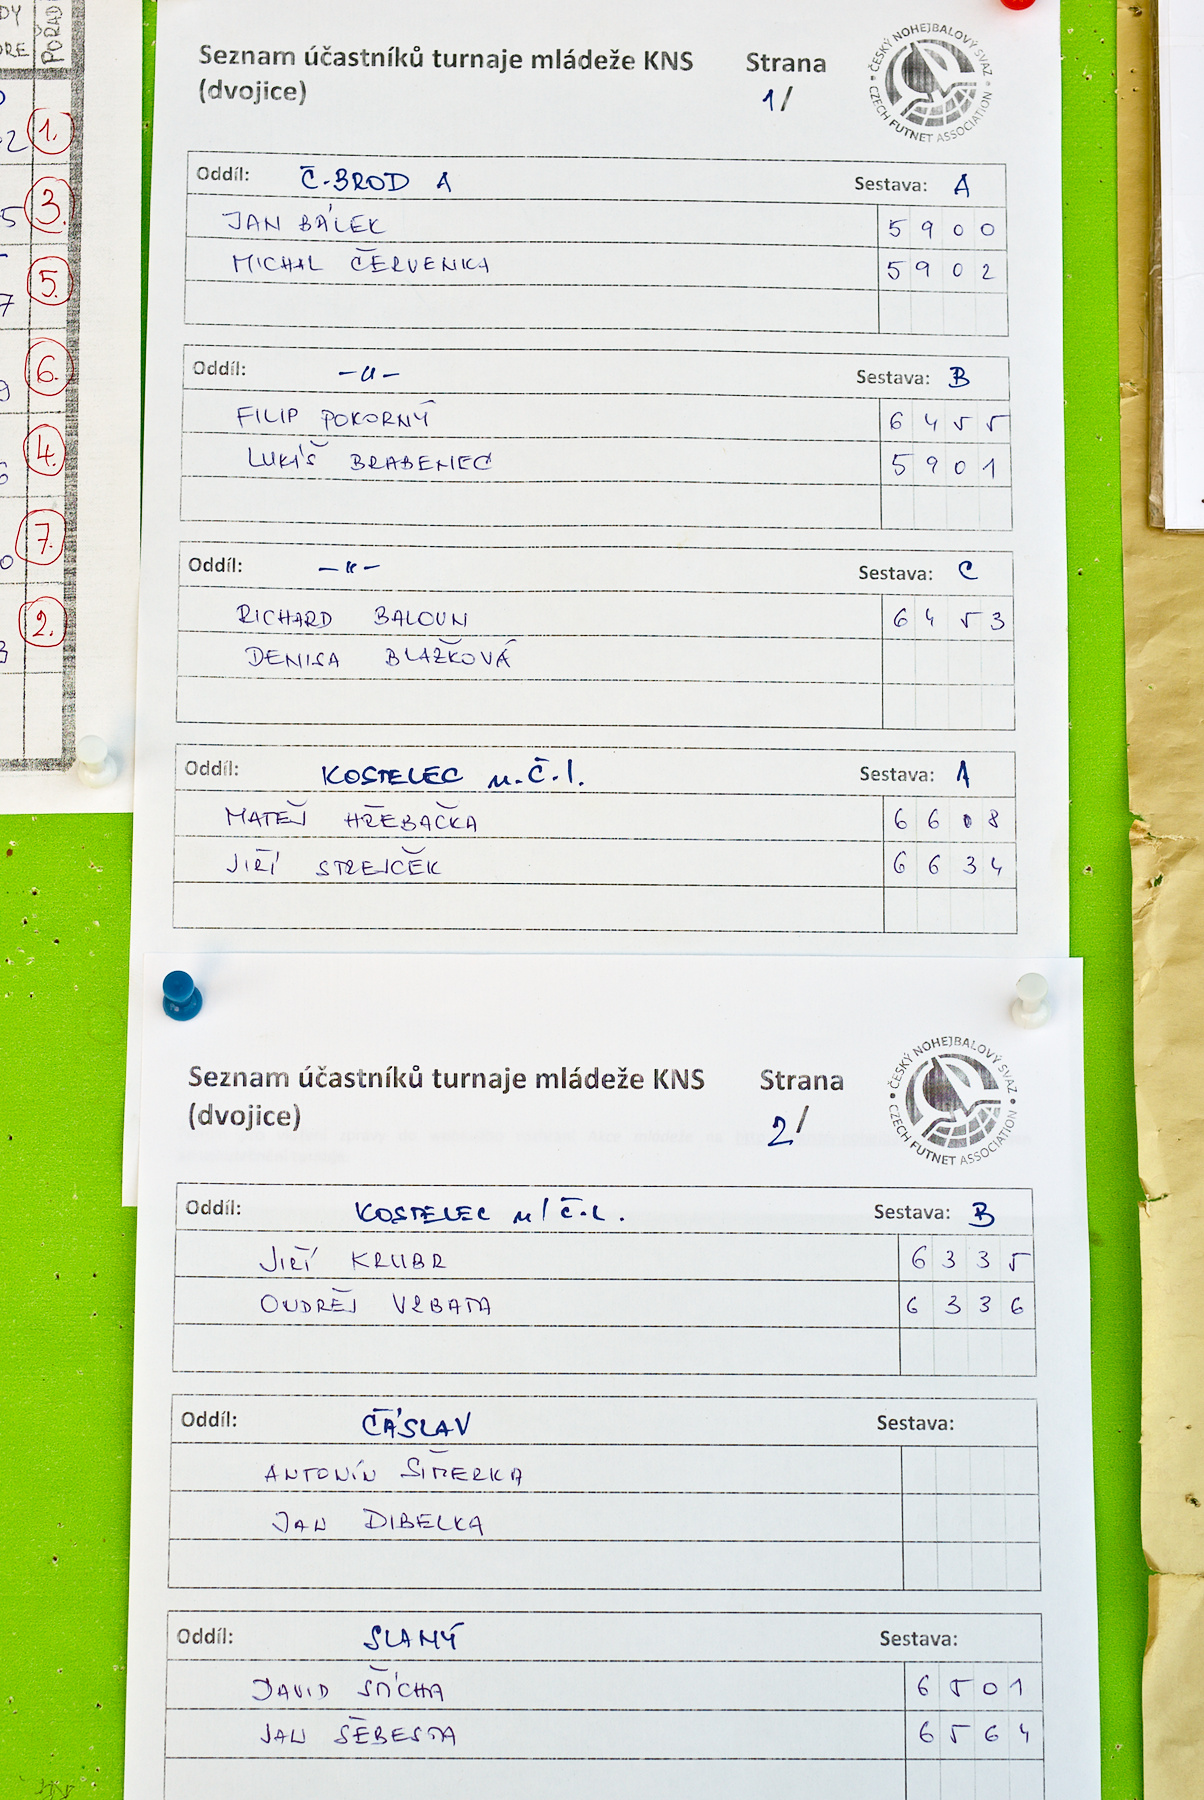 DY
ORE
POŘAD
1.
3.
5.
6.
4.
7.
2.
Seznam účastníků turnaje mládeže KNS Strana
(dvojice) 1/
ČESKÝ NOHEJBALOVÝ SVAZ
CZECH FUTNET ASSOCIATION
Oddíl: Č-BROD A Sestava: A
JAN BÁLEK 5900
MICHAL ČERVENKA 5902
Oddíl: -u- Sestava: B
FILIP POKORNÝ 6455
LUKÁŠ BRABENEC 5901
Oddíl: -"- Sestava: C
RICHARD BALOUN 6453
DENISA BLAŽKOVÁ
Oddíl: KOSTELEC n.Č.l. Sestava: A
MATEJ HŘEBAČKA 6608
JIŘÍ STREJČEK 6634
Seznam účastníků turnaje mládeže KNS Strana
(dvojice) 2/
ČESKÝ NOHEJBALOVÝ SVAZ
CZECH FUTNET ASSOCIATION
Oddíl: KOSTELEC n/Č.L. Sestava: B
JIŘÍ KRUBR 6335
ONDŘEJ VRBATA 6336
Oddíl: ČÁSLAV Sestava:
ANTONÍN ŠIMERKA
JAN DIBELKA
Oddíl: SLANÝ Sestava:
DAVID ŠŤÍCHA 6501
JAN ŠEBESTA 6564